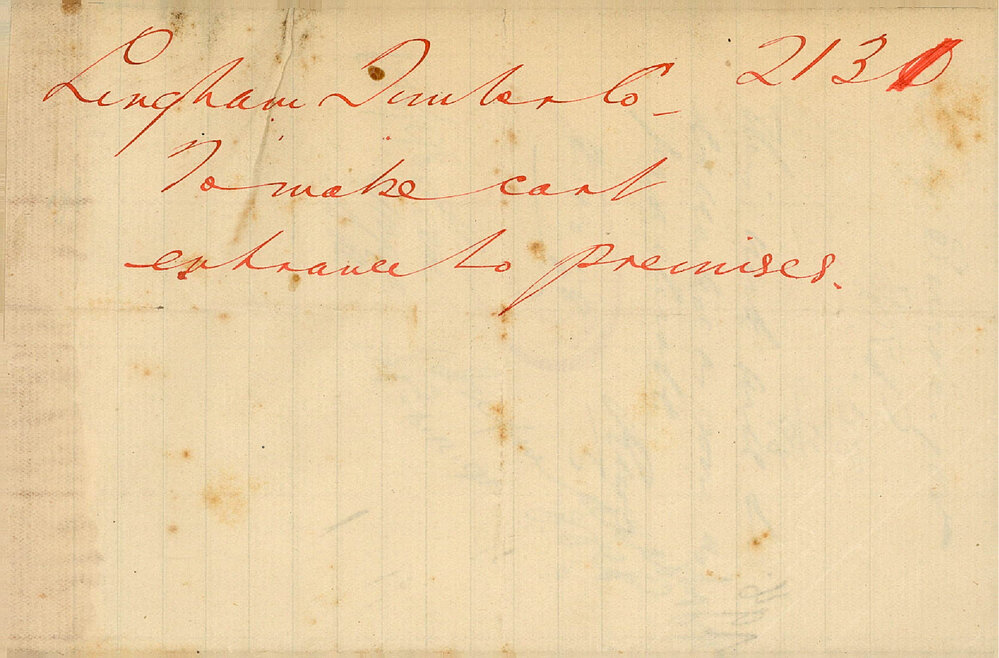 Lingham Timber Co 2130
To make cart
entrance to premises.